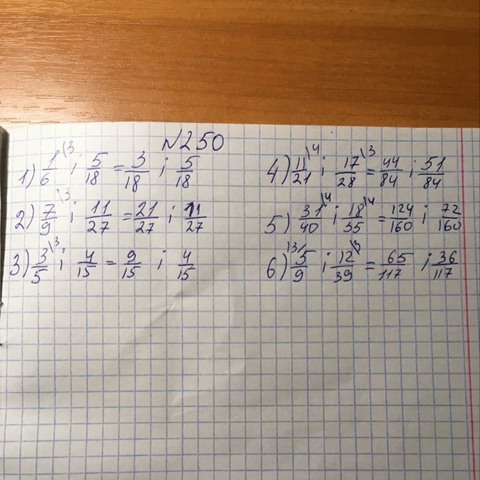 №250
1) 1/6 \3 і 5/18 = 3/18 і 5/18
2) 7/9 \3 і 11/27 = 21/27 і 11/27
3) 3/5 \3 і 4/15 = 9/15 і 4/15
4) 11/21 \4 і 17/28 \3 = 44/84 і 51/84
5) 31/40 \4 і 18/35 \4 = 124/160 і 72/160
6) 13/ 5/9 і 12/39 \3 = 65/117 і 36/117